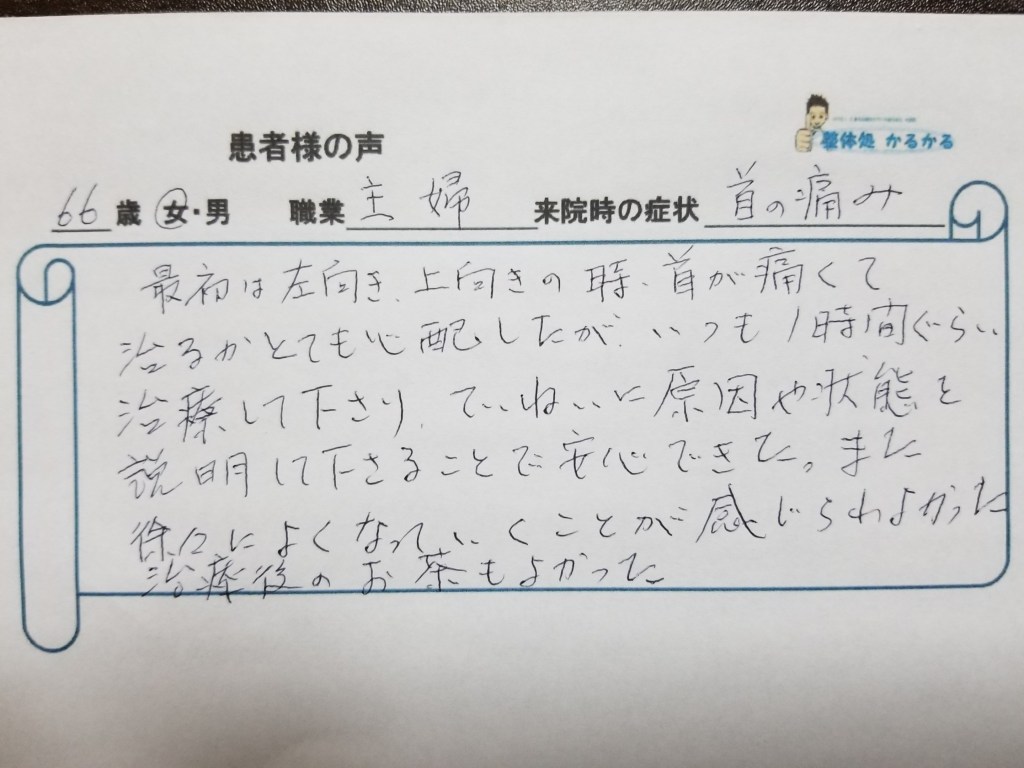 患者様の声
整体処 かるかる
66歳 女・男 職業 主婦 来院時の症状 首の痛み
最初は左向き、上向きの時、首が痛くて
治るかとても心配したが、いつも1時間ぐらい
治療して下さり、ていねいに原因や状態を
説明して下さることで安心できた。また
徐々によくなっていくことが感じられよかった
治療後のお茶もよかった